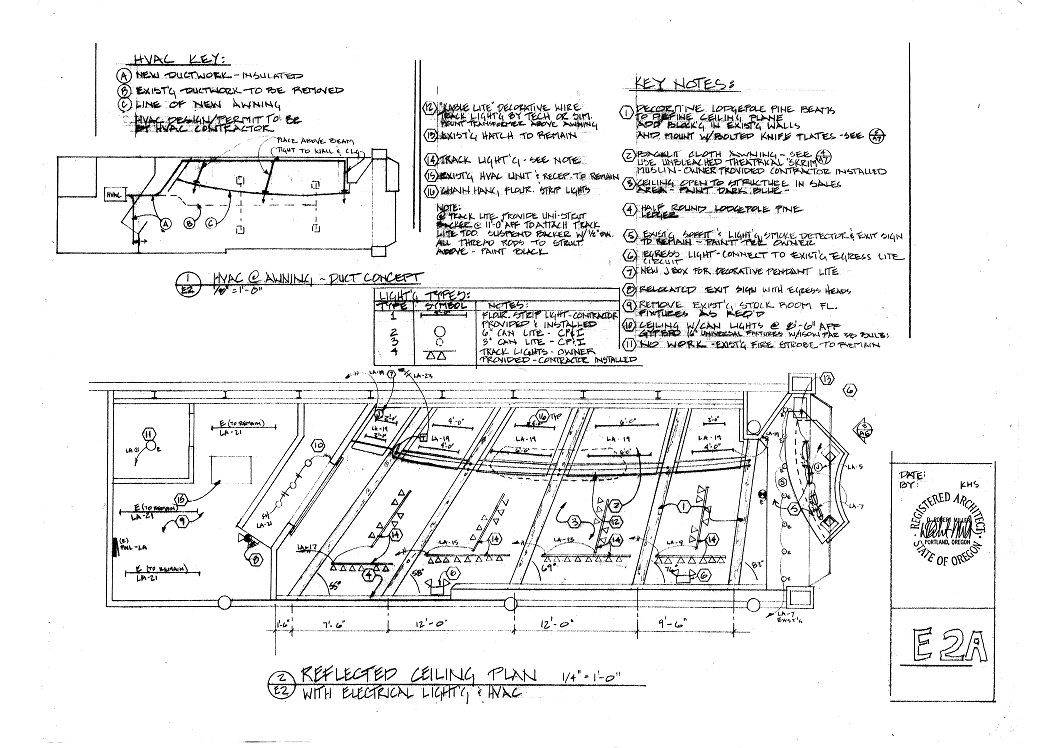 HVAC KEY:
A NEW DUCTWORK - INSULATED
B EXIST'G DUCTWORK TO BE REMOVED
C LINE OF NEW AWNING
HVAC DESIGN/PERMIT TO BE
BY HVAC CONTRACTOR
PLACE ABOVE BEAM
TIGHT TO WALL & CLG
HVAC
A
B
C
1
E2
HVAC @ AWNING ~ DUCT CONCEPT
1/8" = 1'-0"
12 "KABLE LITE" DECORATIVE WIRE
TRACK LIGHT'G BY TECH OR SIM.
MOUNT TRANSFORMER ABOVE AWNING
13 EXIST'G HATCH TO REMAIN
14 TRACK LIGHT'G - SEE NOTE
15 EXIST'G HVAC UNIT & RECEP. TO REMAIN
16 CHAIN HANG, FLOUR. STRIP LIGHTS
NOTE:
@ TRACK LITE PROVIDE UNI-STRUT
BACKER @ 11'-0" AFF TO ATTACH TRACK
LITE TOO. SUSPEND BACKER W/ 1/2" DIA.
ALL THREAD RODS TO STRUT
ABOVE - PAINT BLACK
KEY NOTES:
1 DECORATIVE LODGEPOLE PINE BEAMS
TO DEFINE CEILING PLANE
ADD BLOCK'G IN EXIST'G WALLS
AND MOUNT W/ BOLTED KNIFE PLATES - SEE
2 BACKLIT CLOTH AWNING - SEE
USE UNBLEACHED THEATRICAL "SKRIM"
MUSLIN - OWNER PROVIDED CONTRACTOR INSTALLED
3 CEILING OPEN TO STRUCTURE IN SALES
AREA - PAINT DARK BLUE -
4 HALF ROUND LODGEPOLE PINE
LEDGER
5 EXIST'G SOFFIT & LIGHT'G, SMOKE DETECTOR & EXIT SIGN
TO REMAIN - PAINT PER OWNER
6 EGRESS LIGHT - CONNECT TO EXIST'G EGRESS LITE
CIRCUIT
7 NEW J BOX FOR DECORATIVE PENDANT LITE
8 RELOCATED EXIT SIGN WITH EGRESS HEADS
9 REMOVE EXIST'G STOCK ROOM FL.
FIXTURES AS REQ'D
10 CEILING W/ CAN LIGHTS @ 8'-6" AFF
11 NO WORK - EXIST'G FIRE STROBE TO REMAIN
LIGHT'G TYPES:
TYPE SYMBOL NOTES:
1 FLOUR. STRIP LIGHT - CONTRACTOR
PROVIDED & INSTALLED
2 6" CAN LITE - CP&I
3 5" CAN LITE - CP&I
4 TRACK LIGHTS - OWNER
PROVIDED - CONTRACTOR INSTALLED
LA-19
7
LA-23
13
6
11
LA-21
E
E (TO REMAIN)
LA-21
10
4'-0"
16 TYP
6'-0"
LA-19
LA-19
LA-19
LA-19
LA-19
LA-5
LA-7
15
9
E (TO REMAIN)
LA-21
(E)
PNL - LA
E (TO REMAIN)
LA-21
LA-21
8
LA-17
14
4
55°
LA-15
14
6
58°
LA-13
3
2
12
14
69°
LA-9
1
14
6
76°
83°
5
LA-7
EXIST'G
1'-6"
7'-6"
12'-0"
12'-0"
9'-6"
2
E2
REFLECTED CEILING PLAN 1/4" = 1'-0"
WITH ELECTRICAL LIGHT'G & HVAC
DATE:
BY: KHS
REGISTERED ARCHITECT
D. ROBERT MILLER
PORTLAND, OREGON
STATE OF OREGON
E2A